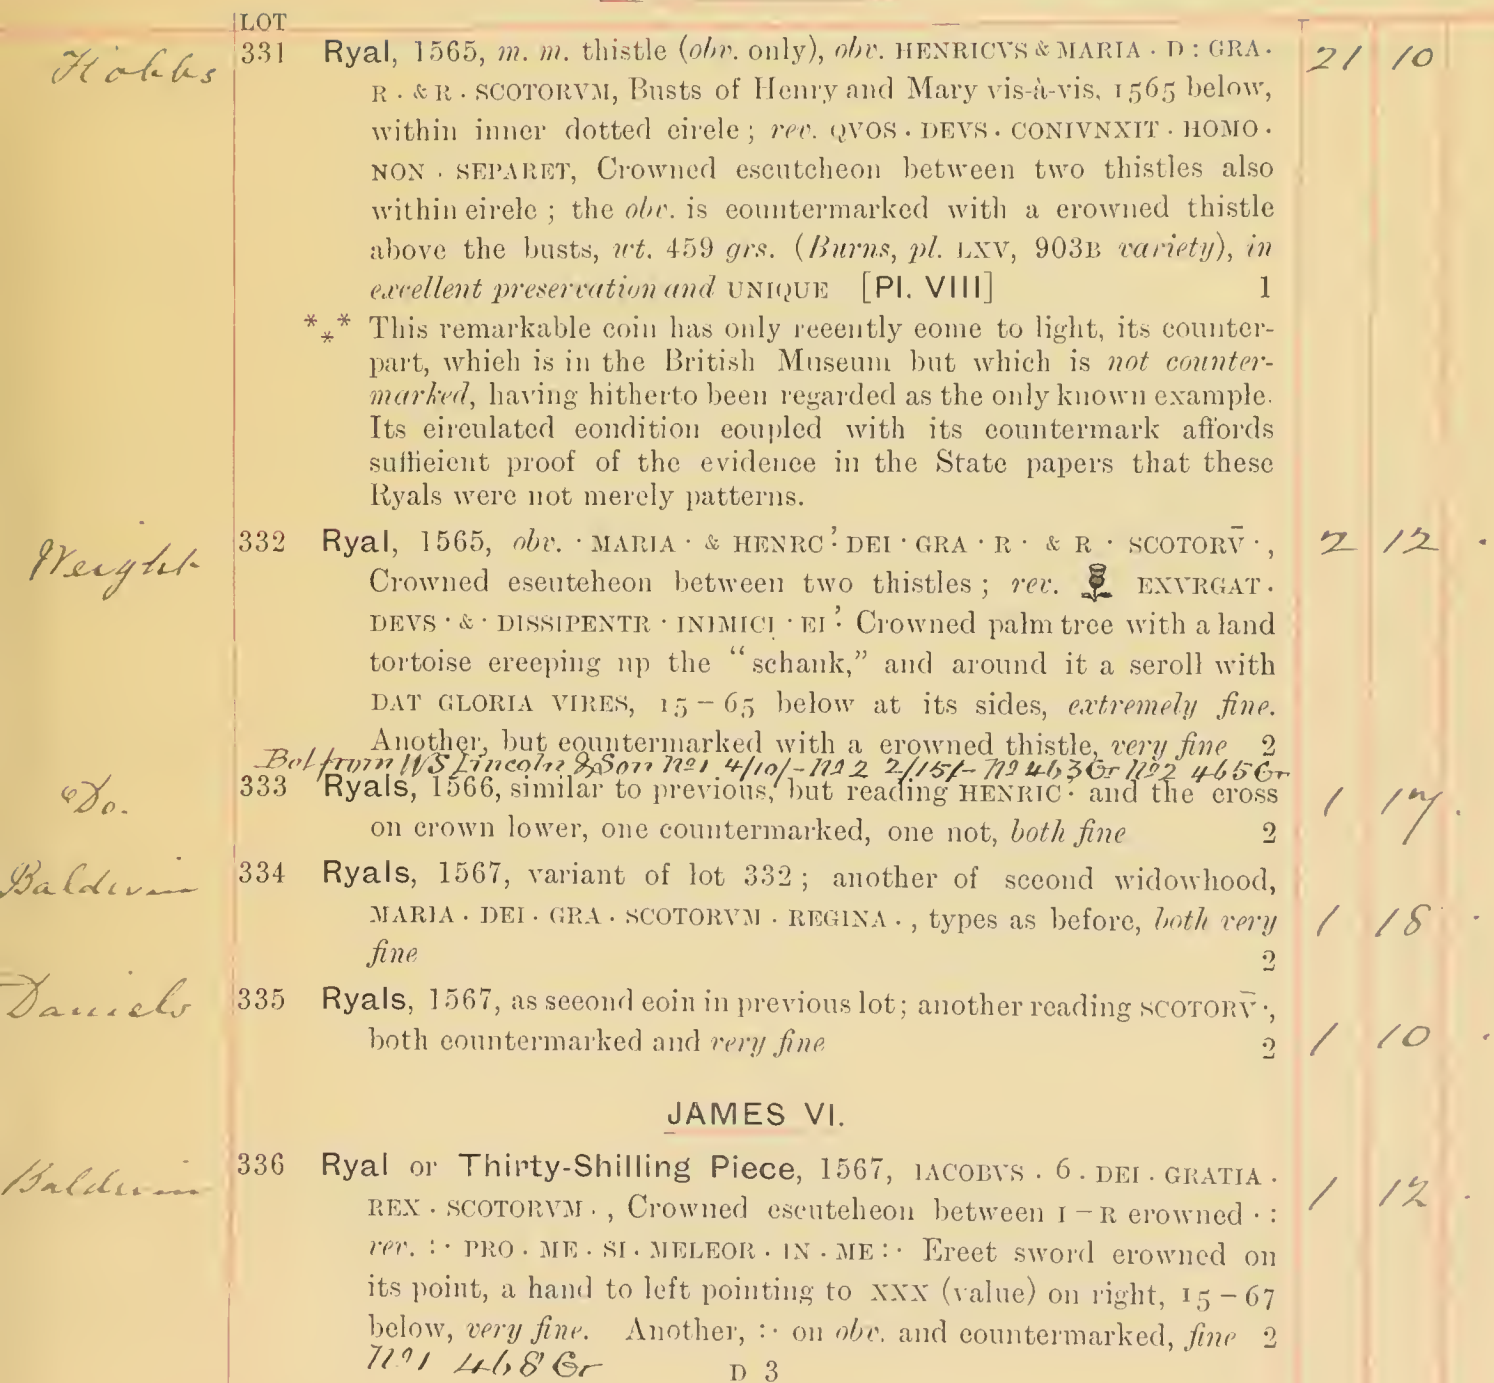 LOT
Hobbs 331 Ryal, 1565, m. m. thistle (obv. only), obv. HENRICVS & MARIA · D : GRA · 21 10
R · & R · SCOTORVM, Busts of Henry and Mary vis-à-vis, 1565 below,
within inner dotted circle ; rev. QVOS · DEVS · CONIVNXIT · HOMO ·
NON · SEPARET, Crowned escutcheon between two thistles also
within circle ; the obv. is countermarked with a crowned thistle
above the busts, wt. 459 grs. (Burns, pl. LXV, 903B variety), in
excellent preservation and UNIQUE [Pl. VIII] 1
*** This remarkable coin has only recently come to light, its counter-
part, which is in the British Museum but which is not counter-
marked, having hitherto been regarded as the only known example.
Its circulated condition coupled with its countermark affords
sufficient proof of the evidence in the State papers that these
Ryals were not merely patterns.
Weight 332 Ryal, 1565, obv. · MARIA · & HENRC' · DEI · GRA · R · & R · SCOTORV̄ ·, 2 12 ·
Crowned escutcheon between two thistles ; rev. EXVRGAT ·
DEVS · & · DISSIPENTR · INIMICI · EI' · Crowned palm tree with a land
tortoise creeping up the “schank,” and around it a scroll with
DAT GLORIA VIRES, 15 – 65 below at its sides, extremely fine.
Another, but countermarked with a crowned thistle, very fine 2
Bot from WS Lincoln & Son No1 4/10/- No2 2/15/- No 463 Gr No2 465 Gr
Do. 333 Ryals, 1566, similar to previous, but reading HENRIC · and the cross 1 17 ·
on crown lower, one countermarked, one not, both fine 2
Baldwin 334 Ryals, 1567, variant of lot 332 ; another of second widowhood,
MARIA · DEI · GRA · SCOTORVM · REGINA · , types as before, both very 1 18 ·
fine 2
Daniels 335 Ryals, 1567, as second coin in previous lot ; another reading SCOTORV̄ ·,
both countermarked and very fine 2 1 10 ·
JAMES VI.
Baldwin 336 Ryal or Thirty-Shilling Piece, 1567, IACOBVS · 6 · DEI · GRATIA · 1 12 ·
REX · SCOTORVM · , Crowned escutcheon between I – R crowned · :
rev. : · PRO · ME · SI · MELEOR · IN · ME : · Erect sword crowned on
its point, a hand to left pointing to XXX (value) on right, 15 – 67
below, very fine. Another, : · on obv. and countermarked, fine 2
No1 468 Gr D 3